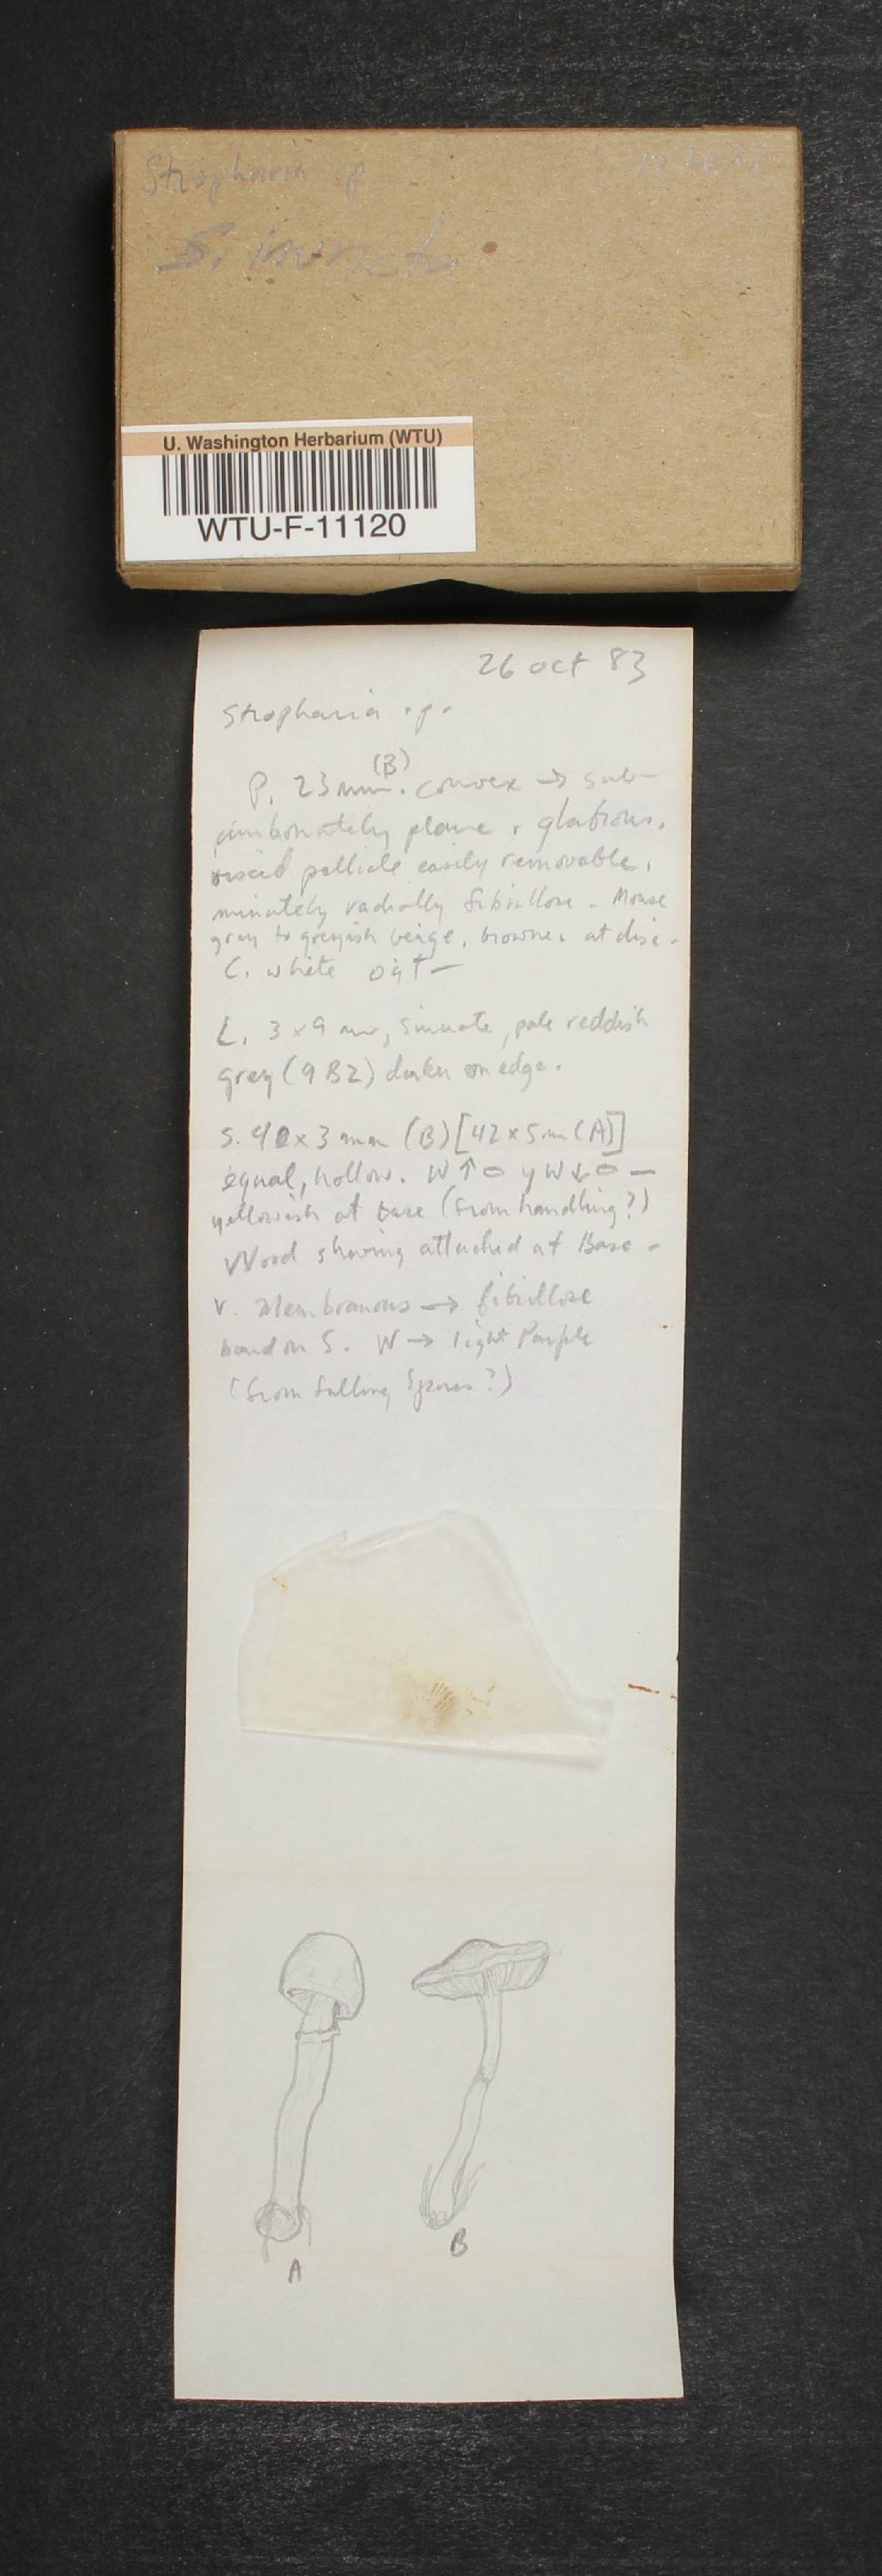 Stropharia sp
10 26 83
S. inuncta
U. Washington Herbarium (WTU)
WTU-F-11120
26 oct 83
Stropharia sp.
(B)
P. 23 mm. convex → sub-
umbonately plane, glabrous.
viscid pellicle easily removable,
minutely radially fibrillose. Mouse
gray to greyish beige, browner at disc.
C. white
L. 3 x 9 mm, sinuate, pale reddish
grey (9B2) darker on edge.
S. 40 x 3 mm (B) [42 x 5 mm (A)]
equal, hollow. W ↑ y W ↓
yellowish at base (from handling?)
Wood shaving attached at Base.
V. Membranous → fibrillose
band on S. W → light Purple
(from falling spores?)
A
B